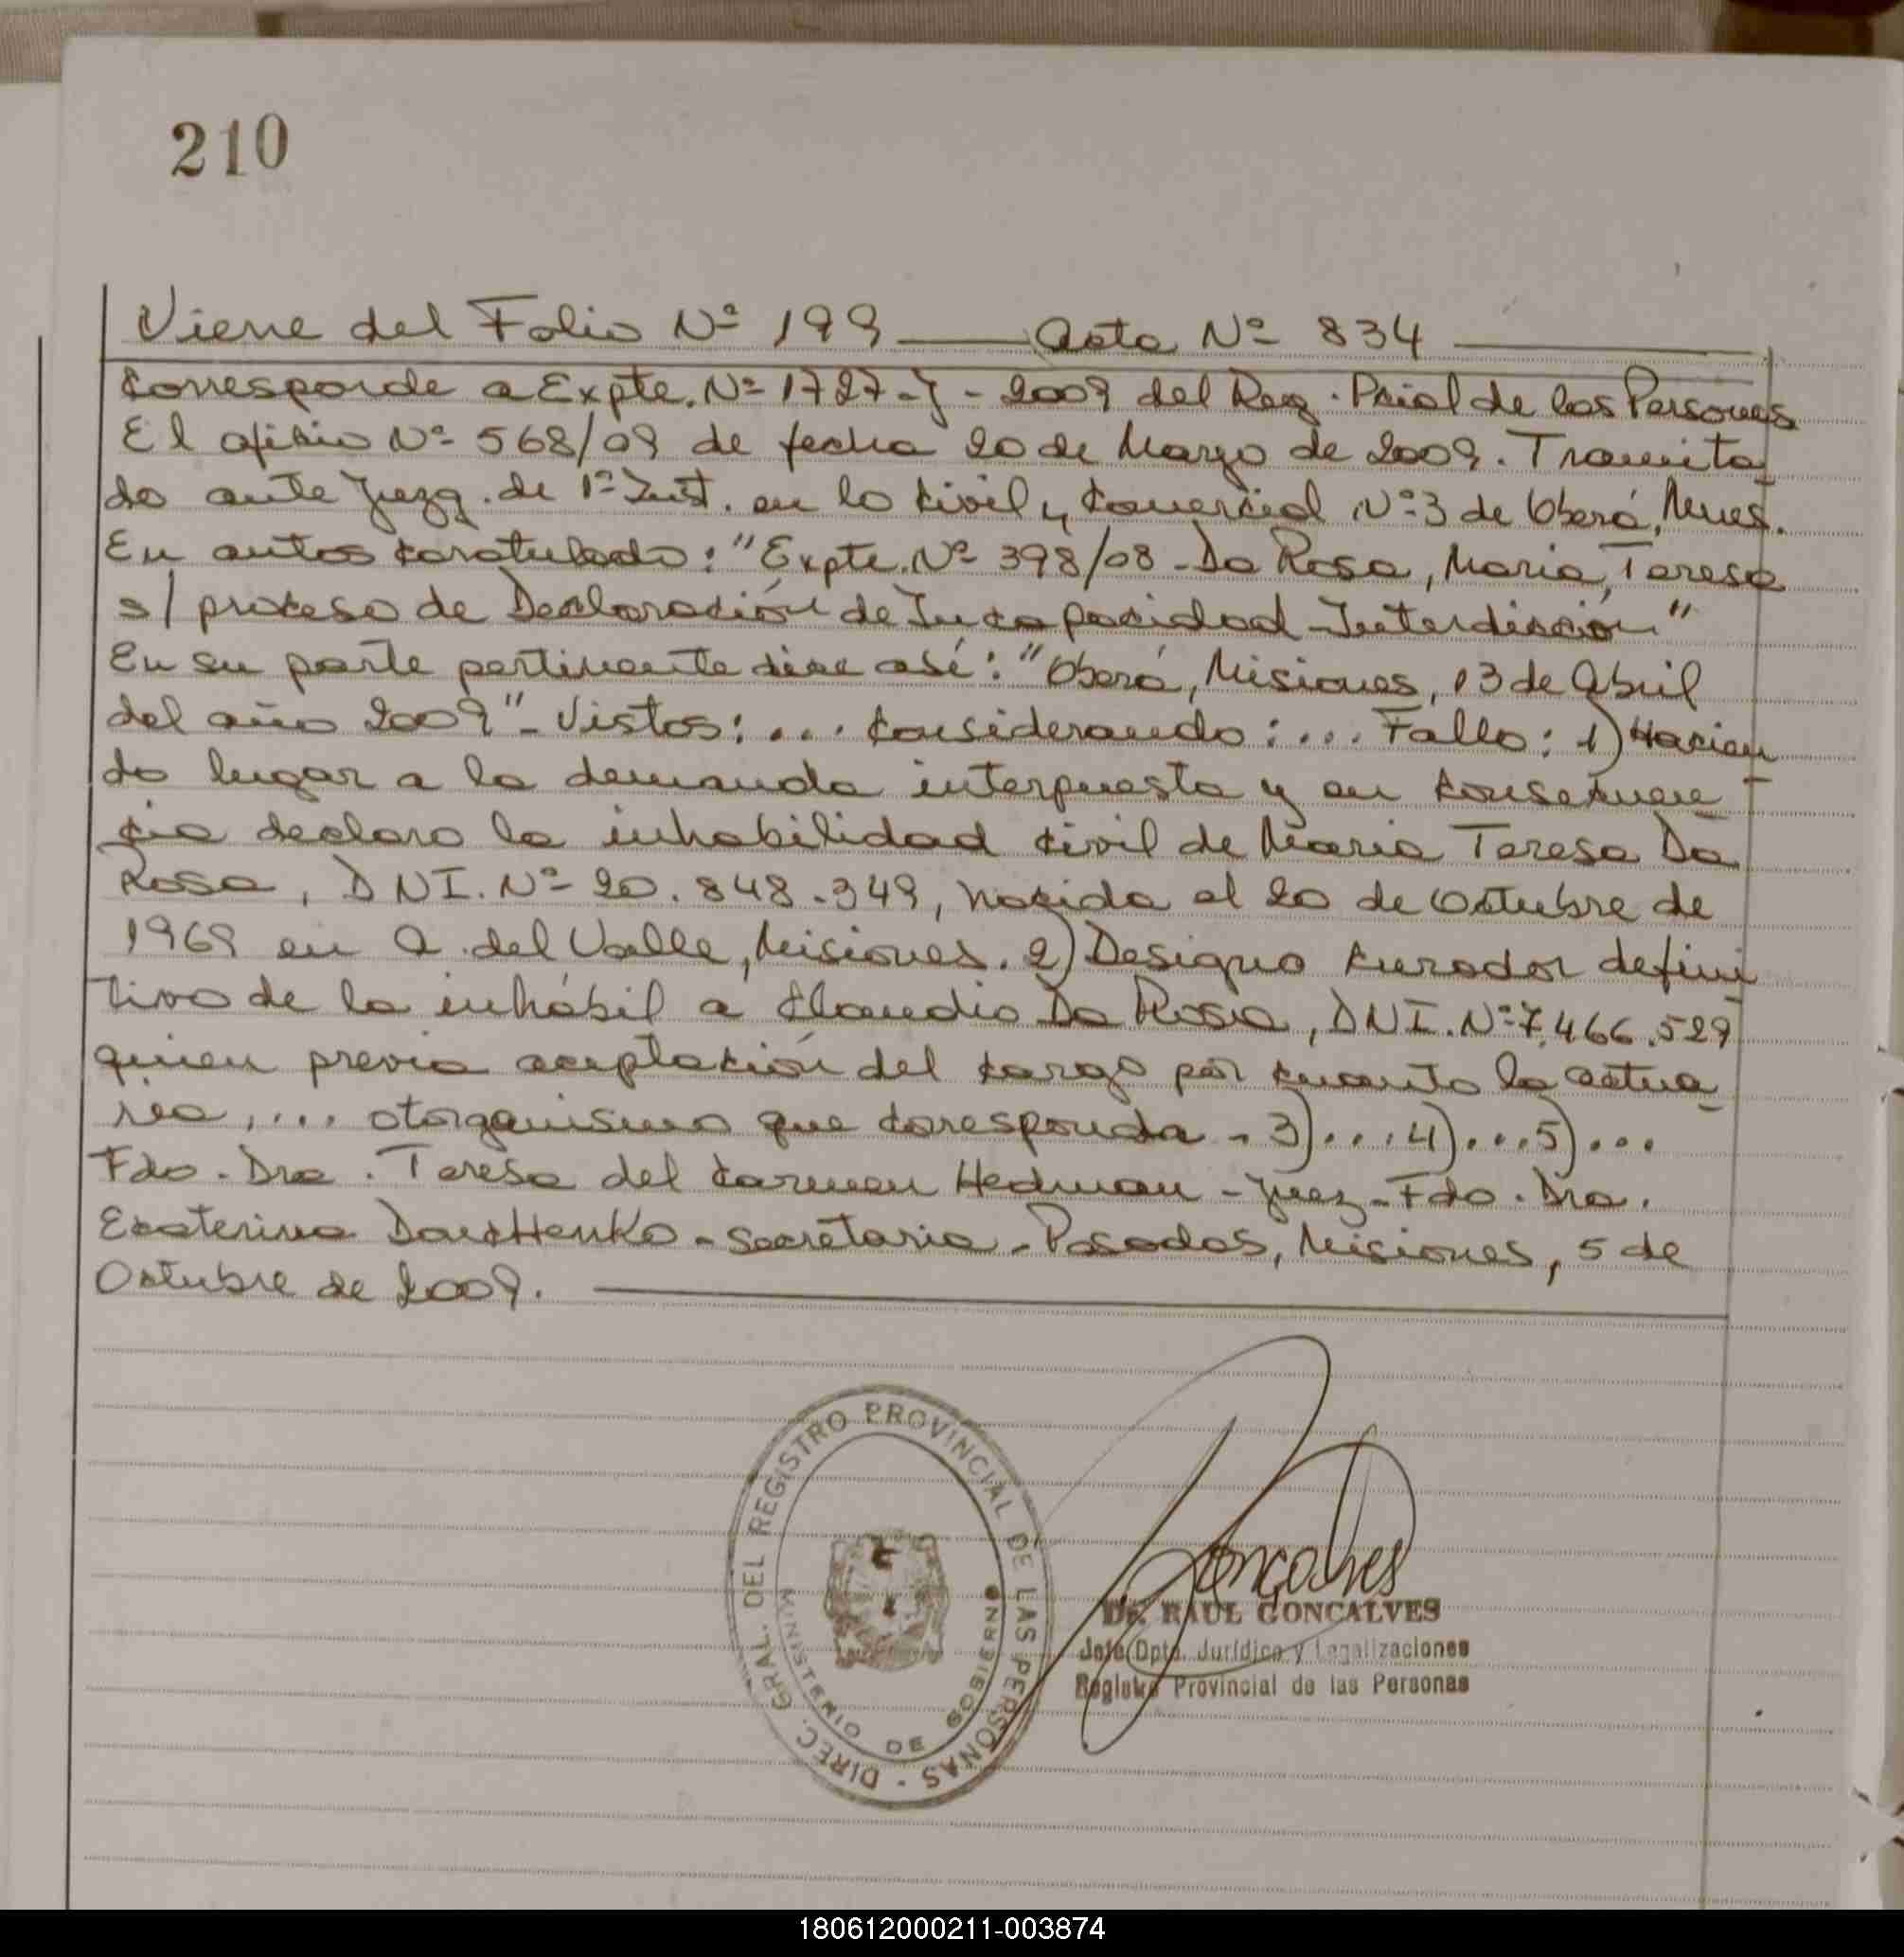 210
Viene del Folio Nº 199 — Acta Nº 834 —
Corresponde a Expte. Nº 1727-J-2009 del Reg. Pcial de las Personas
El oficio Nº 568/09 de fecha 20 de Marzo de 2009. Tramita
do ante Juzg. de 1ª Inst. en lo Civil y Comercial Nº 3 de Oberá, Mnes.
En autos caratulado: "Expte. Nº 398/08 - Da Rosa, Maria Teresa
s/ proceso de Declaración de Incapacidad - Interdicción"
En su parte pertinente dice así: "Oberá, Misiones, 13 de Abril
del año 2009" - Vistos: ... Considerando: ... Fallo: 1) Hacien
do lugar a la demanda interpuesta y en consecuen-
cia declaro la inhabilidad civil de Maria Teresa Da
Rosa, DNI. Nº 20.848.349, nacida el 20 de Octubre de
1969 en A. del Valle, Misiones. 2) Designo Curador defini
tivo de la inhábil a Claudio Da Rosa, DNI. Nº 7.466.529
quien previa aceptación del cargo por cuanto la actua
ria, ... otorganismo que coresponda - 3) ... 4) ... 5) ...
Fdo. Dra. Teresa del Carmen Hedman - Juez - Fdo. Dra.
Ecaterina - Secretaria - Posadas, Misiones, 5 de
Octubre de 2009. —
DIREC. GRAL. DEL REGISTRO PROVINCIAL DE LAS PERSONAS -
MINISTERIO DE GOBIERNO
Goncalves
Dr. RAUL GONCALVES
Jefe Dpto. Jurídico y Legalizaciones
Registro Provincial de las Personas
180612000211-003874